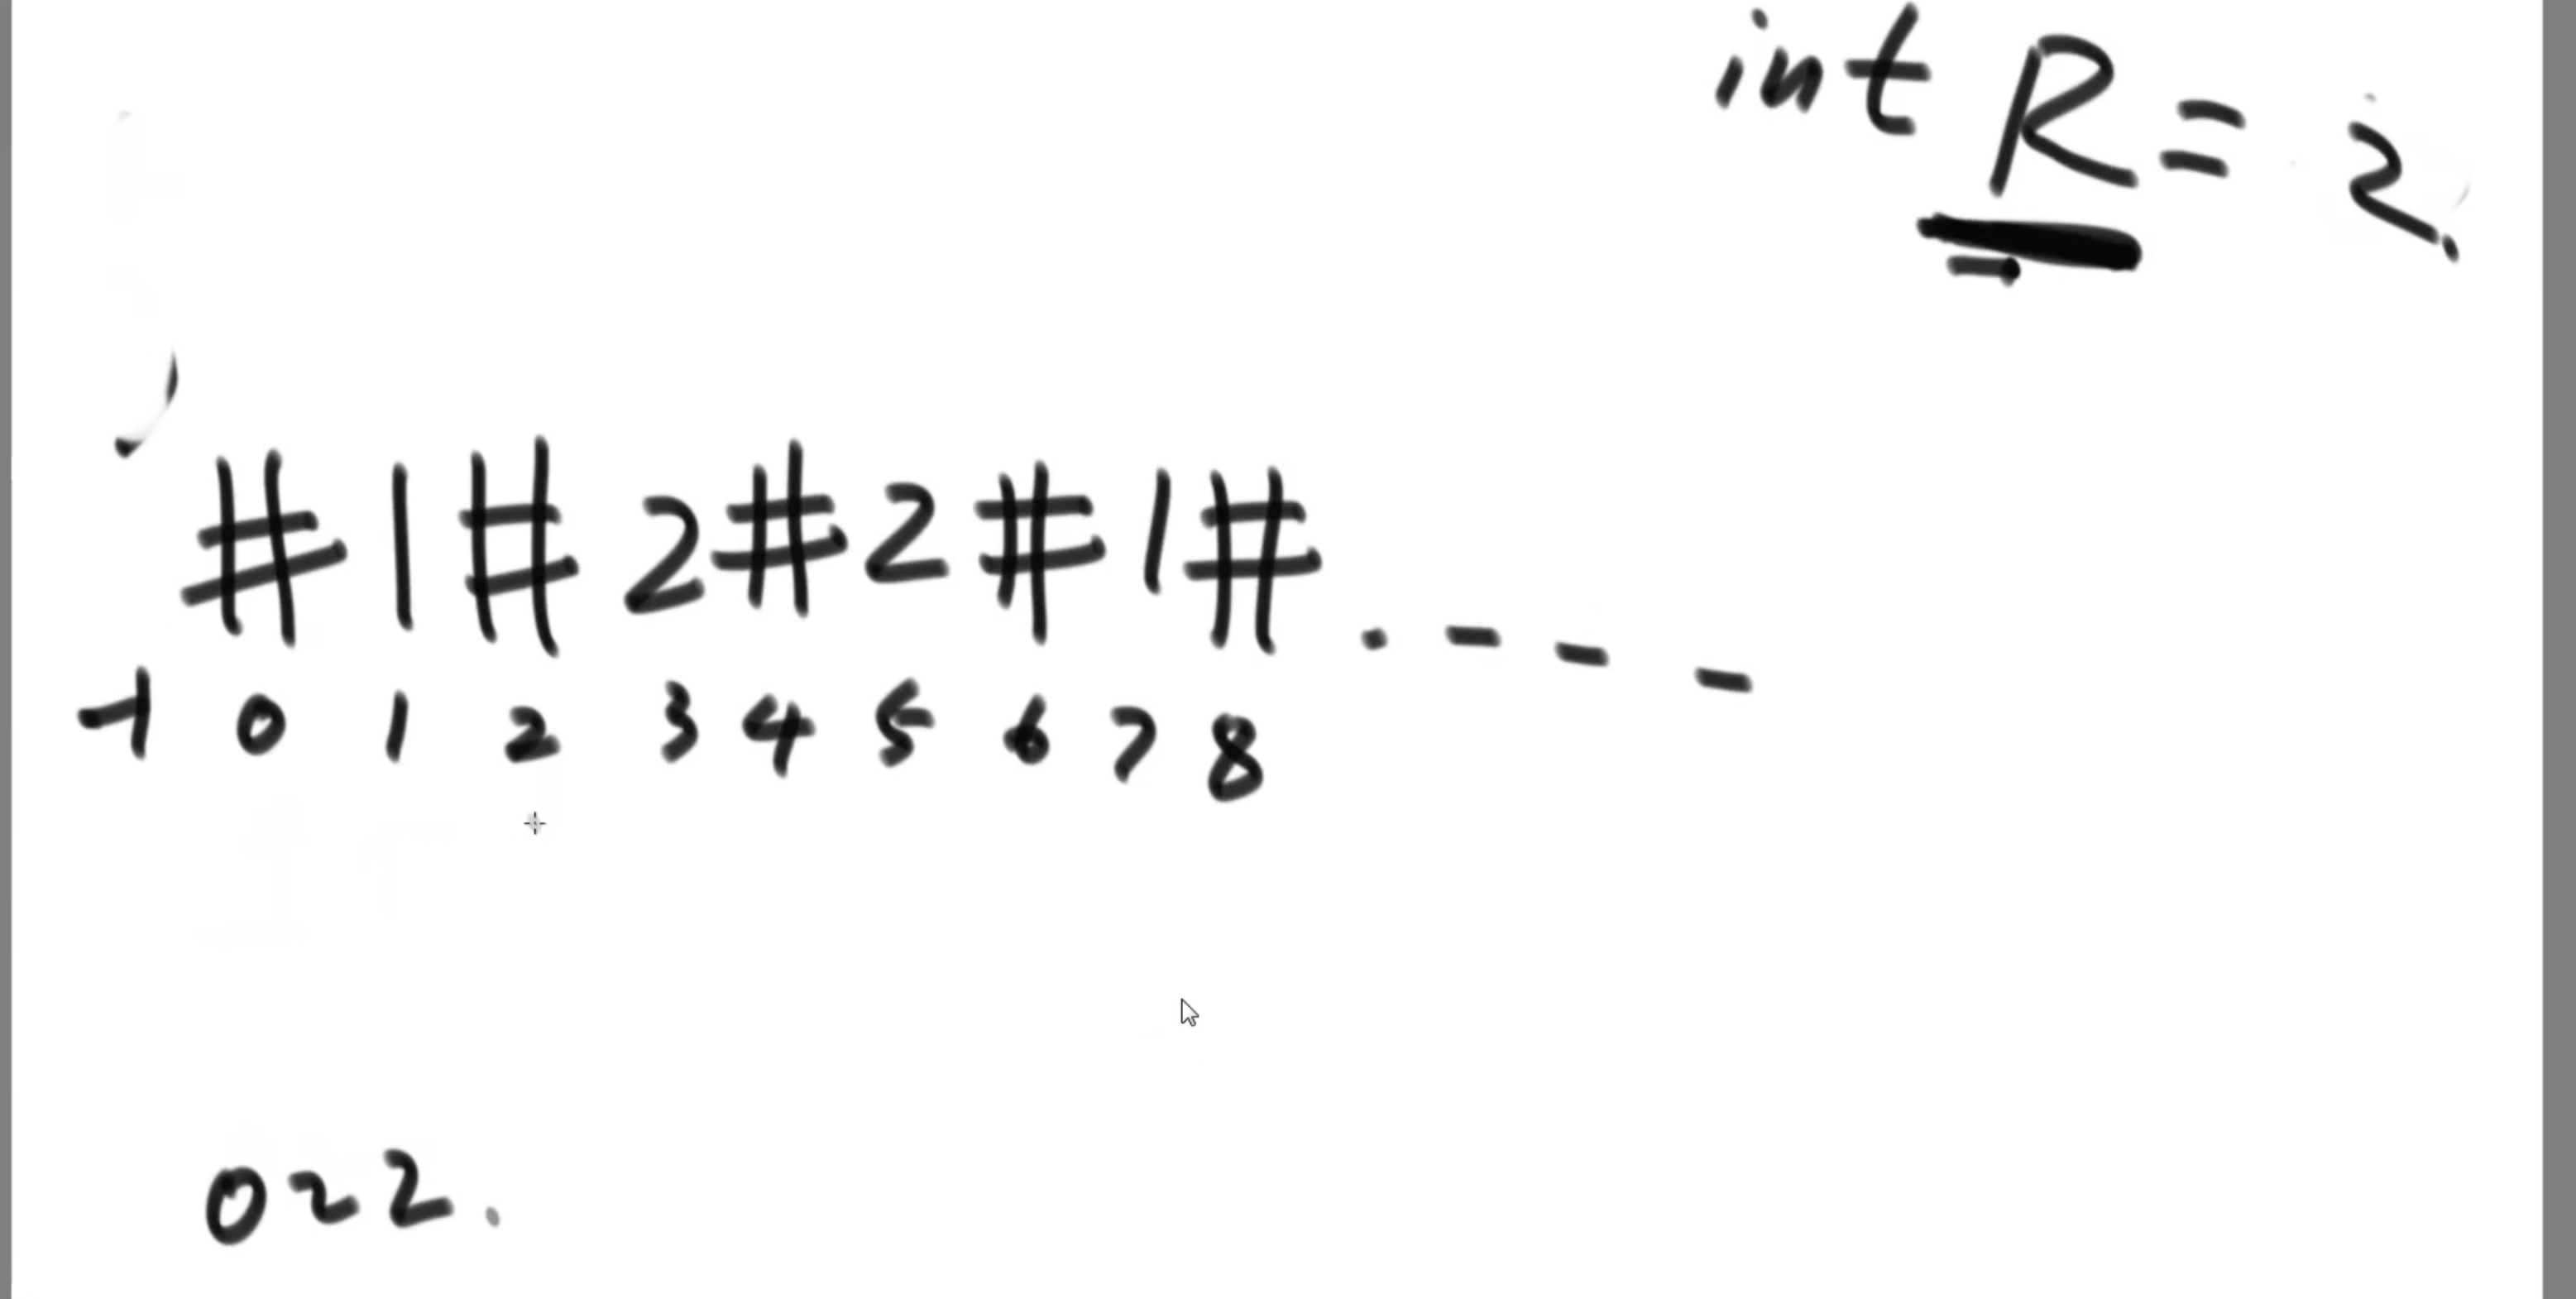 int R = 2.
# 1 # 2 # 2 # 1 # . - - -
-1 0 1 2 3 4 5 6 7 8
0 ~ 2 .